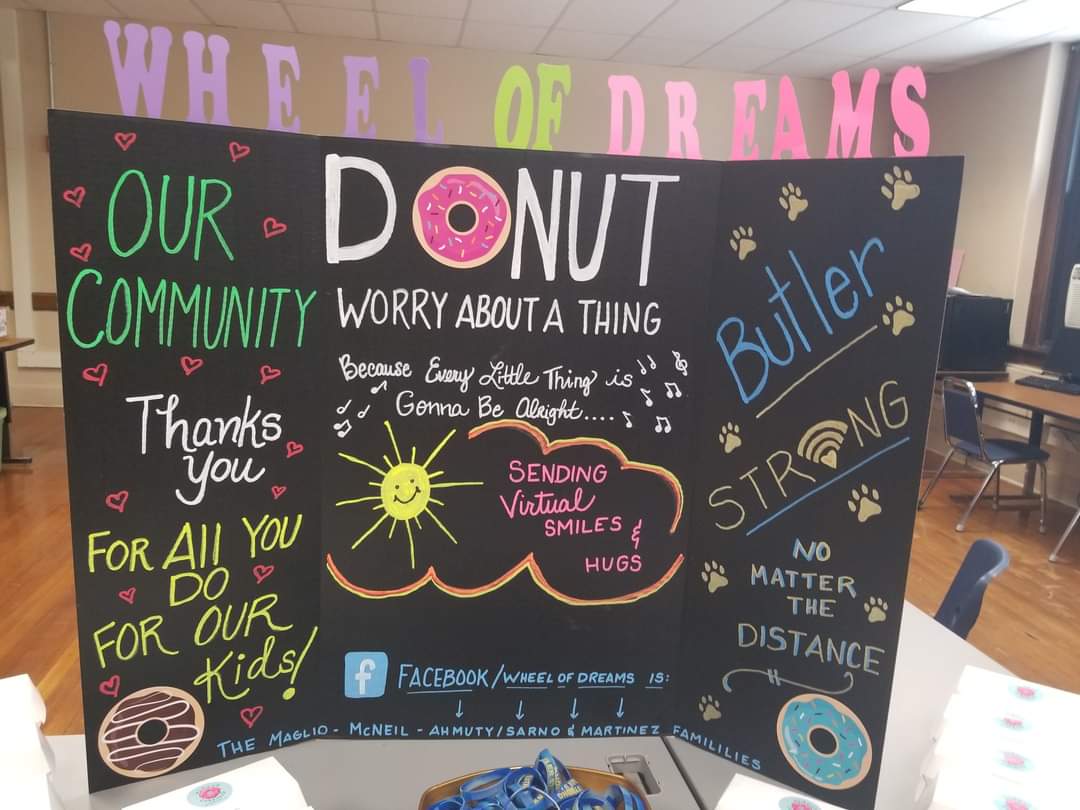 WHEEL OF DREAMS
OUR
COMMUNITY
Thanks
you
FOR All YOU
DO
FOR OUR
Kids!
DONUT
WORRY ABOUT A THING
Because Every Little Thing is
Gonna Be Alright....
SENDING
Virtual
SMILES &
HUGS
f FACEBOOK/WHEEL OF DREAMS IS:
THE MAGLIO - MCNEIL - AHMUTY/SARNO & MARTINEZ FAMILILIES
Butler
STRONG
NO
MATTER
THE
DISTANCE